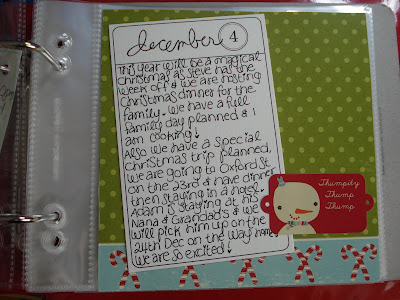 december 4
This year will be a magical
Christmas as Steve has the
week off & we are hosting
Christmas dinner for the
family. We have a full
family day planned & I
am cooking!
Also we have a special
Christmas trip planned,
we are going to Oxford St
on the 23rd & have dinner
then staying in a hotel.
Adam is staying at his
Nana & Grandad's & we
will pick him up on the
24th Dec on the way home.
We are so excited!
Thumpity
Thump
Thump